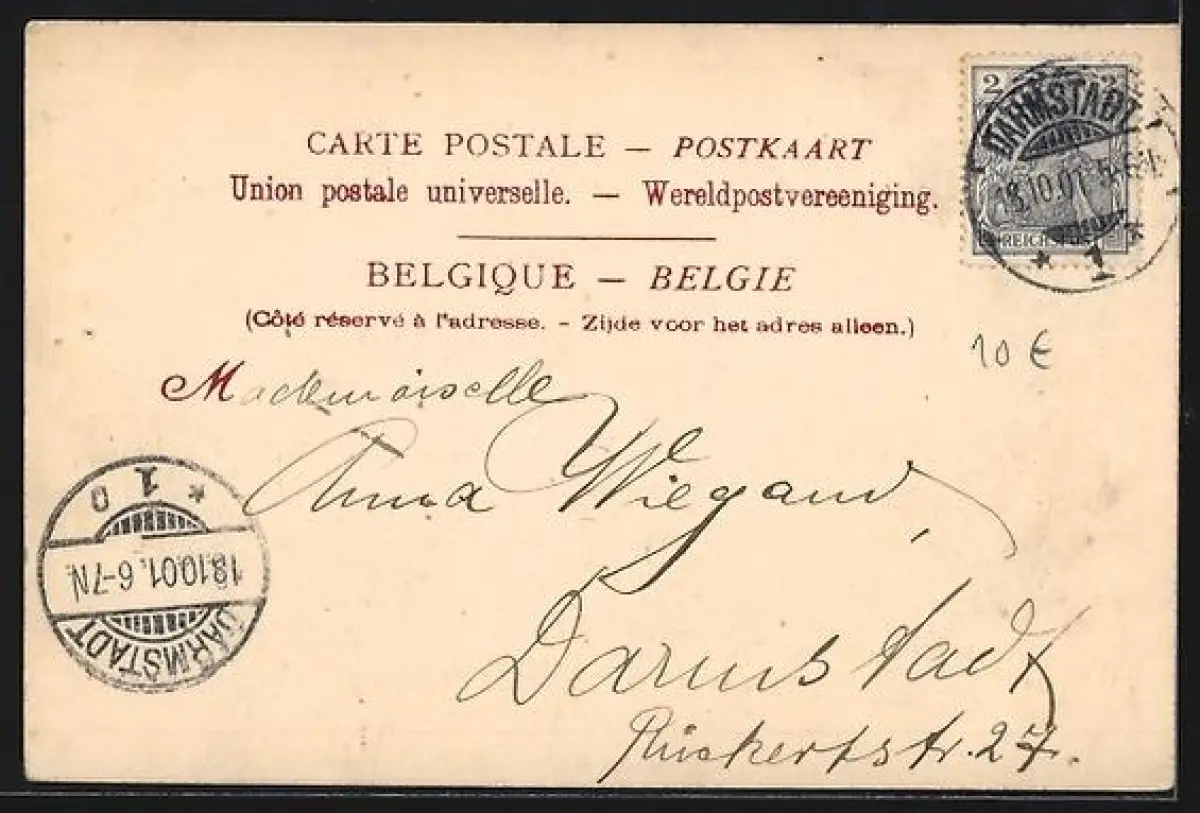 CARTE POSTALE — POSTKAART
Union postale universelle. — Wereldpostvereeniging.
BELGIQUE — BELGIE
(Côté réservé à l'adresse. - Zijde voor het adres alleen.)
2 2
REICHSPOST
DARMSTADT
18.10.01 5-6N
* 1 *
10 €
Mademoiselle
Anna Wiegand
Darmstadt
Rückertstr. 27.
DARMSTADT
18.10.01. 6-7N.
* 1 0